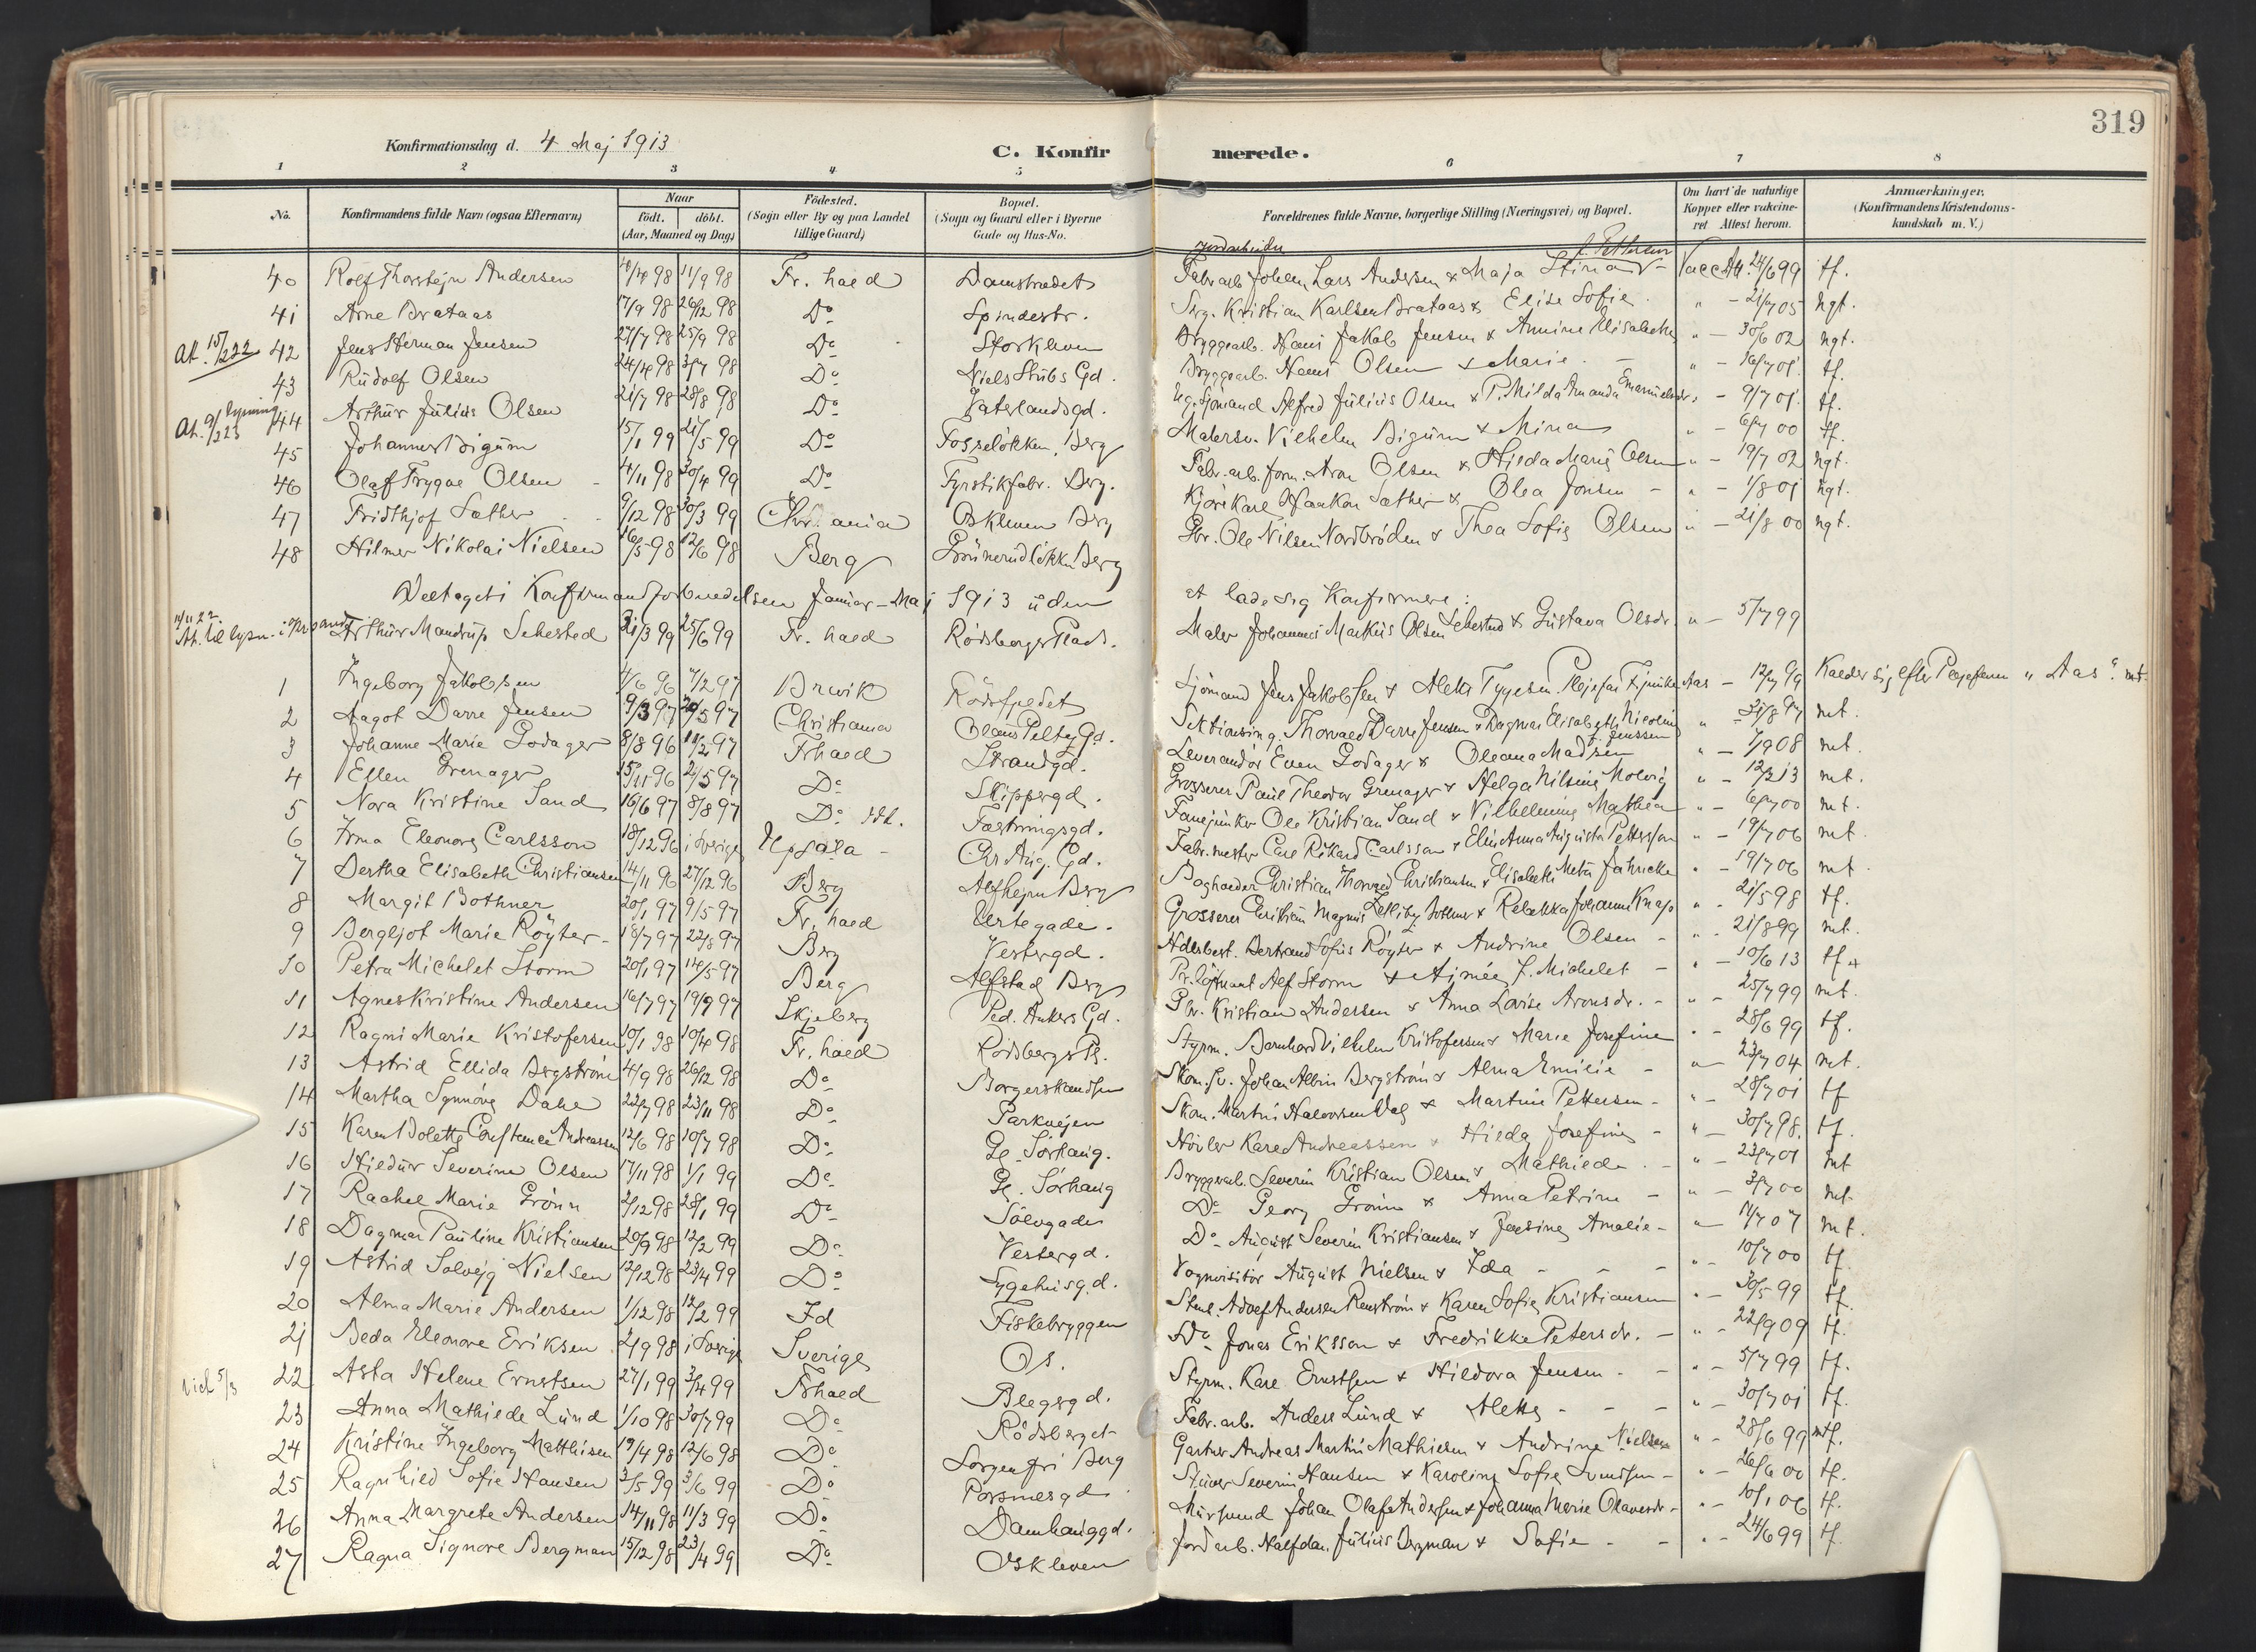 319
Konfirmationsdag d. 4 Maj 1913
C. Konfirmerede.
1 2 3 4 5 6 7 8
No. Konfirmandens fulde Navn (ogsaa Efternavn) Naar født. døbt. (Aar, Maaned og Dag) Födested. (Sogn eller By og paa Landet tillige Gaard) Bopæl. (Sogn og Gaard eller i Byerne Gade og Hus-No. Forældrenes fulde Navne, borgerlige Stilling (Næringsvei) og Bopæl. Om havt de naturlige Kopper eller vakcineret Attest herom. Anmærkninger. (Konfirmandens Kristendomskundskab m. V.)
Jordarbeider f. Pettersen
40 Rolf Thorstejn Andersen 98 11/9 98 Fr. hald Damstrædet Fabr.arb. Johan Lars Andersen & Maja Stina Vacc. Att. 24/6 99 tf.
41 Arne Brataas 17/9 98 26/12 98 Do Spindestr. Kristian Karlsen Brataas & Elise Sofie " - 21/7 05 ngt.
42 Jens Herman Jensen 27/7 98 25/9 98 Do Storkleven Bryggearb. Hans Jakob Jensen & Annine Elisabeth " - 30/6 02 ngt.
43 Rudolf Olsen 24/4 98 3/7 98 Do Niels Stubs Gd. Bryggearb. Hans Olsen & Marie - " - 16/7 01 tf.
44 Arthur Julius Olsen 21/7 98 28/8 98 Do Vaterlandsgd. Sjömand Alfred Julius Olsen & P. Milda Amanda Emanuelsdr. - 9/7 01 tf.
45 Johannes Bigum 15/1 99 21/5 99 Do Fosseløkken, Berg Malersv. Vilhelm Bigum & Mina " - 6/7 00 tf.
46 Olaf Trygve Olsen 4/11 98 30/4 99 Do Fyrstikfabr. Berg. Fabr. arb. form. Aron Olsen & Hilda Marie Olsen " - 19/7 02 ngt.
47 Fridthjof Sæther 9/12 98 30/3 99 Chr.ania Oskleven Berg Kjörekarl Haakon Sæther & Olea Jonsen - " - 1/8 01 ngt.
48 Hilmer Nikolai Nielsen 16/5 98 12/6 98 Berg Grünerudløkken Berg Gbr. Ole Nilsen Nordbrøden & Thea Sofie Olsen " - 21/8 00 ngt.
Deltaget i Konfirmandforberedelsen Januar - Maj 1913 uden at lade sig Konfirmere:
Arthur Mandrup Sehested 21/3 99 25/6 99 Fr. hald Rødsbergs Plads. Maler Johannes Markus Olsen Sehested & Gustava Olsdr. " - 5/7 99
1 Ingeborg Jakobsen 4/6 96 7/2 97 Brevik Rødsfjeldet Sjömand Jens Jakobsen & Aleks Tygesen. Plejefar Aas - 12/7 99 Kalder sig efter Plejefaren "Aas". mt.
2 Aagot Darre Jensen 9/3 97 29/5 97 Christiania Olaus Pelts Gd. Sektionsing. Thorvald Darre Jensen & Dagmar Elisabeth Nicoline f. Jenssen " - 31/8 97 mt.
3 Johanne Marie Godager 8/8 96 11/2 97 Frhald Strandgd. Leverandör Even Godager & Oleana Madsen " - 7/9 08 mt.
4 Ellen Grenager 15/11 96 21/5 97 Do Skippergd. Grosserer Paul Theodor Grenager & Helga Nilsine Molvig " - 12/2 13 mt.
5 Nora Kristine Sand 16/6 97 8/8 97 Do Fæstningsgd. Fanejunker Ole Kristian Sand & Vilhelmine Mathea " - 6/7 00 mt.
6 Irma Eleonora Carlsson 18/12 96 i Sverige Upsala - Chr. Aug. Gd. Fabr. mester Carl Rikard Carlsson & Elin Anna Augusta Pettersson " - 19/7 06 mt.
7 Bertha Elisabeth Christiansen 14/11 96 27/12 96 Berg Alfhejm Berg Boghandler Christian Thorvald Christiansen & Elisabeth Meta Jahncke " - 19/7 06 mt.
8 Margit Bothner 20/1 97 9/5 97 Fr. hald Urtegade. Grosserer Christian Magnus Bothner & Rebekka Johanne Knap " - 21/5 98 tf.
9 Bergljot Marie Röyter 18/7 97 22/8 97 Berg Vestergd. Bertrand Sofus Röyter & Andrine Olsen - " - 21/8 99 mt.
10 Petra Michelet Storm 20/1 97 14/5 97 Berg Alfstad Berg Pr. löjtnant Alf Storm & Aimée F. Michelet - " - 10/6 13 tf.
11 Agnes Kristine Andersen 16/7 97 19/9 97 Skjeberg Ped. Ankers Gd. Gbr. Kristian Andersen & Anna Lovise Aronsdr. - " - 25/7 99 mt.
12 Ragni Marie Kristofersen 10/1 98 10/4 98 Fr. hald Rødsbergs Pl. Styrm. Bernhard Vilhelm Kristofersen & Marie Josefine " - 28/6 99 tf.
13 Astrid Ellida Bergström 4/9 98 26/12 98 Do Borgerskandsen Skom.sv. Johan Albin Bergström & Alma Emilie - " - 23/7 04 mt.
14 Martha Synnöve Dahl 22/7 98 23/11 98 Do Parkvejen Skom. Martin Halvorsen Dahl & Martine Pettersen - " - 28/7 01 tf
15 Karen Bolette Constance Andreassen 12/6 98 10/7 98 Do Gl. Sørhaug. Karl Andreassen & Hilda Josefine - " - 30/7 98. tf.
16 Hildur Severine Olsen 17/11 98 1/1 99 Do Gl. Sørhaug Bryggearb. Severin Kristian Olsen & Mathilde - " - 23/7 01 mt
17 Raakel Marie Grönn 2/12 98 28/1 99 Do Sölvgaden Do Georg Grönn & Anna Petrine - " - 3/7 00 mt.
18 Dagmar Pauline Kristiansen 20/9 98 12/2 99 Do Vestergd. Do August Severin Kristiansen & Josefine Amalie - " - 11/7 07 mt.
19 Astrid Solvejg Nielsen 12/12 98 23/4 99 Do Sygehusgd. Vognvisitör August Nielsen & Ida - - - " - 10/7 00 tf.
20 Alma Marie Andersen 1/12 98 12/2 99 Id Fiskebryggen Stenh. Adolf Andersen Renström & Karen Sofie Kristiansen " - 30/5 99 tf.
21 Beda Eleonore Eriksen 98 i Sverige Sverige Os. Do Jonas Eriksson & Fredrikke Petersdr. - " - 22/9 09 tf.
Viet 5/3 22 Asta Helene Ernstsen 27/1 99 3/4 99 Frhald Blegsgd. Styrm. Karl Ernstsen & Hildora Jensen - - " - 5/7 99 tf.
23 Anna Mathilde Lund 1/10 98 30/7 99 Do Rødsberget Fabr. arb. Anders Lund & Alette - - - " - 30/7 01 tf.
24 Kristine Ingeborg Matthisen 19/4 98 12/6 98 Do Sorgenfri Berg Gartner Andreas Martin Mathiesen & Andrine Nielsen " - 28/6 99 mtf.
25 Ragnhild Sofie Hansen 3/5 99 3/6 99 Do Porsnesgd. Stuer Severin Hansen & Karoline Sofie Svendsen - " - 26/6 00 tf.
26 Anna Margrete Andersen 14/11 98 11/3 99 Do Damhauggd. Mursvend Johan Olaf Andersen & Johanna Marie Olavesdr - " - 10/1 06 tf.
27 Ragna Signore Bergman 15/12 98 23/4 99 Do Oskleven Jordarb. Halfdan Julius Bergman & Sofie - - " - 24/6 99 tf.